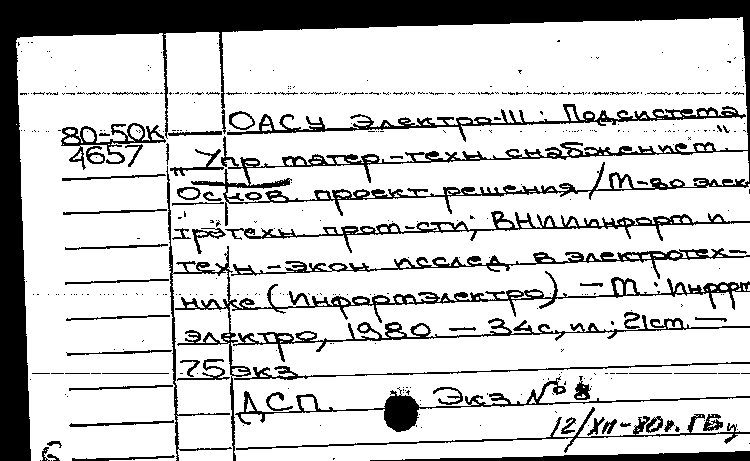 80-50к
4657
ОАСУ Электро-III: Подсистема
"Упр. матер.-техн. снабжением".
Основ. проект. решения / М-во элек-
тротехн. пром-сти; ВНИИинформ. и
техн.-экон. исслед. в электротех-
нике (Информэлектро). — М.: Информ
электро, 1980. — 34 с., ил.; 21 см. —
75 экз.
ДСП. Экз. №
12/XII-80г.
6